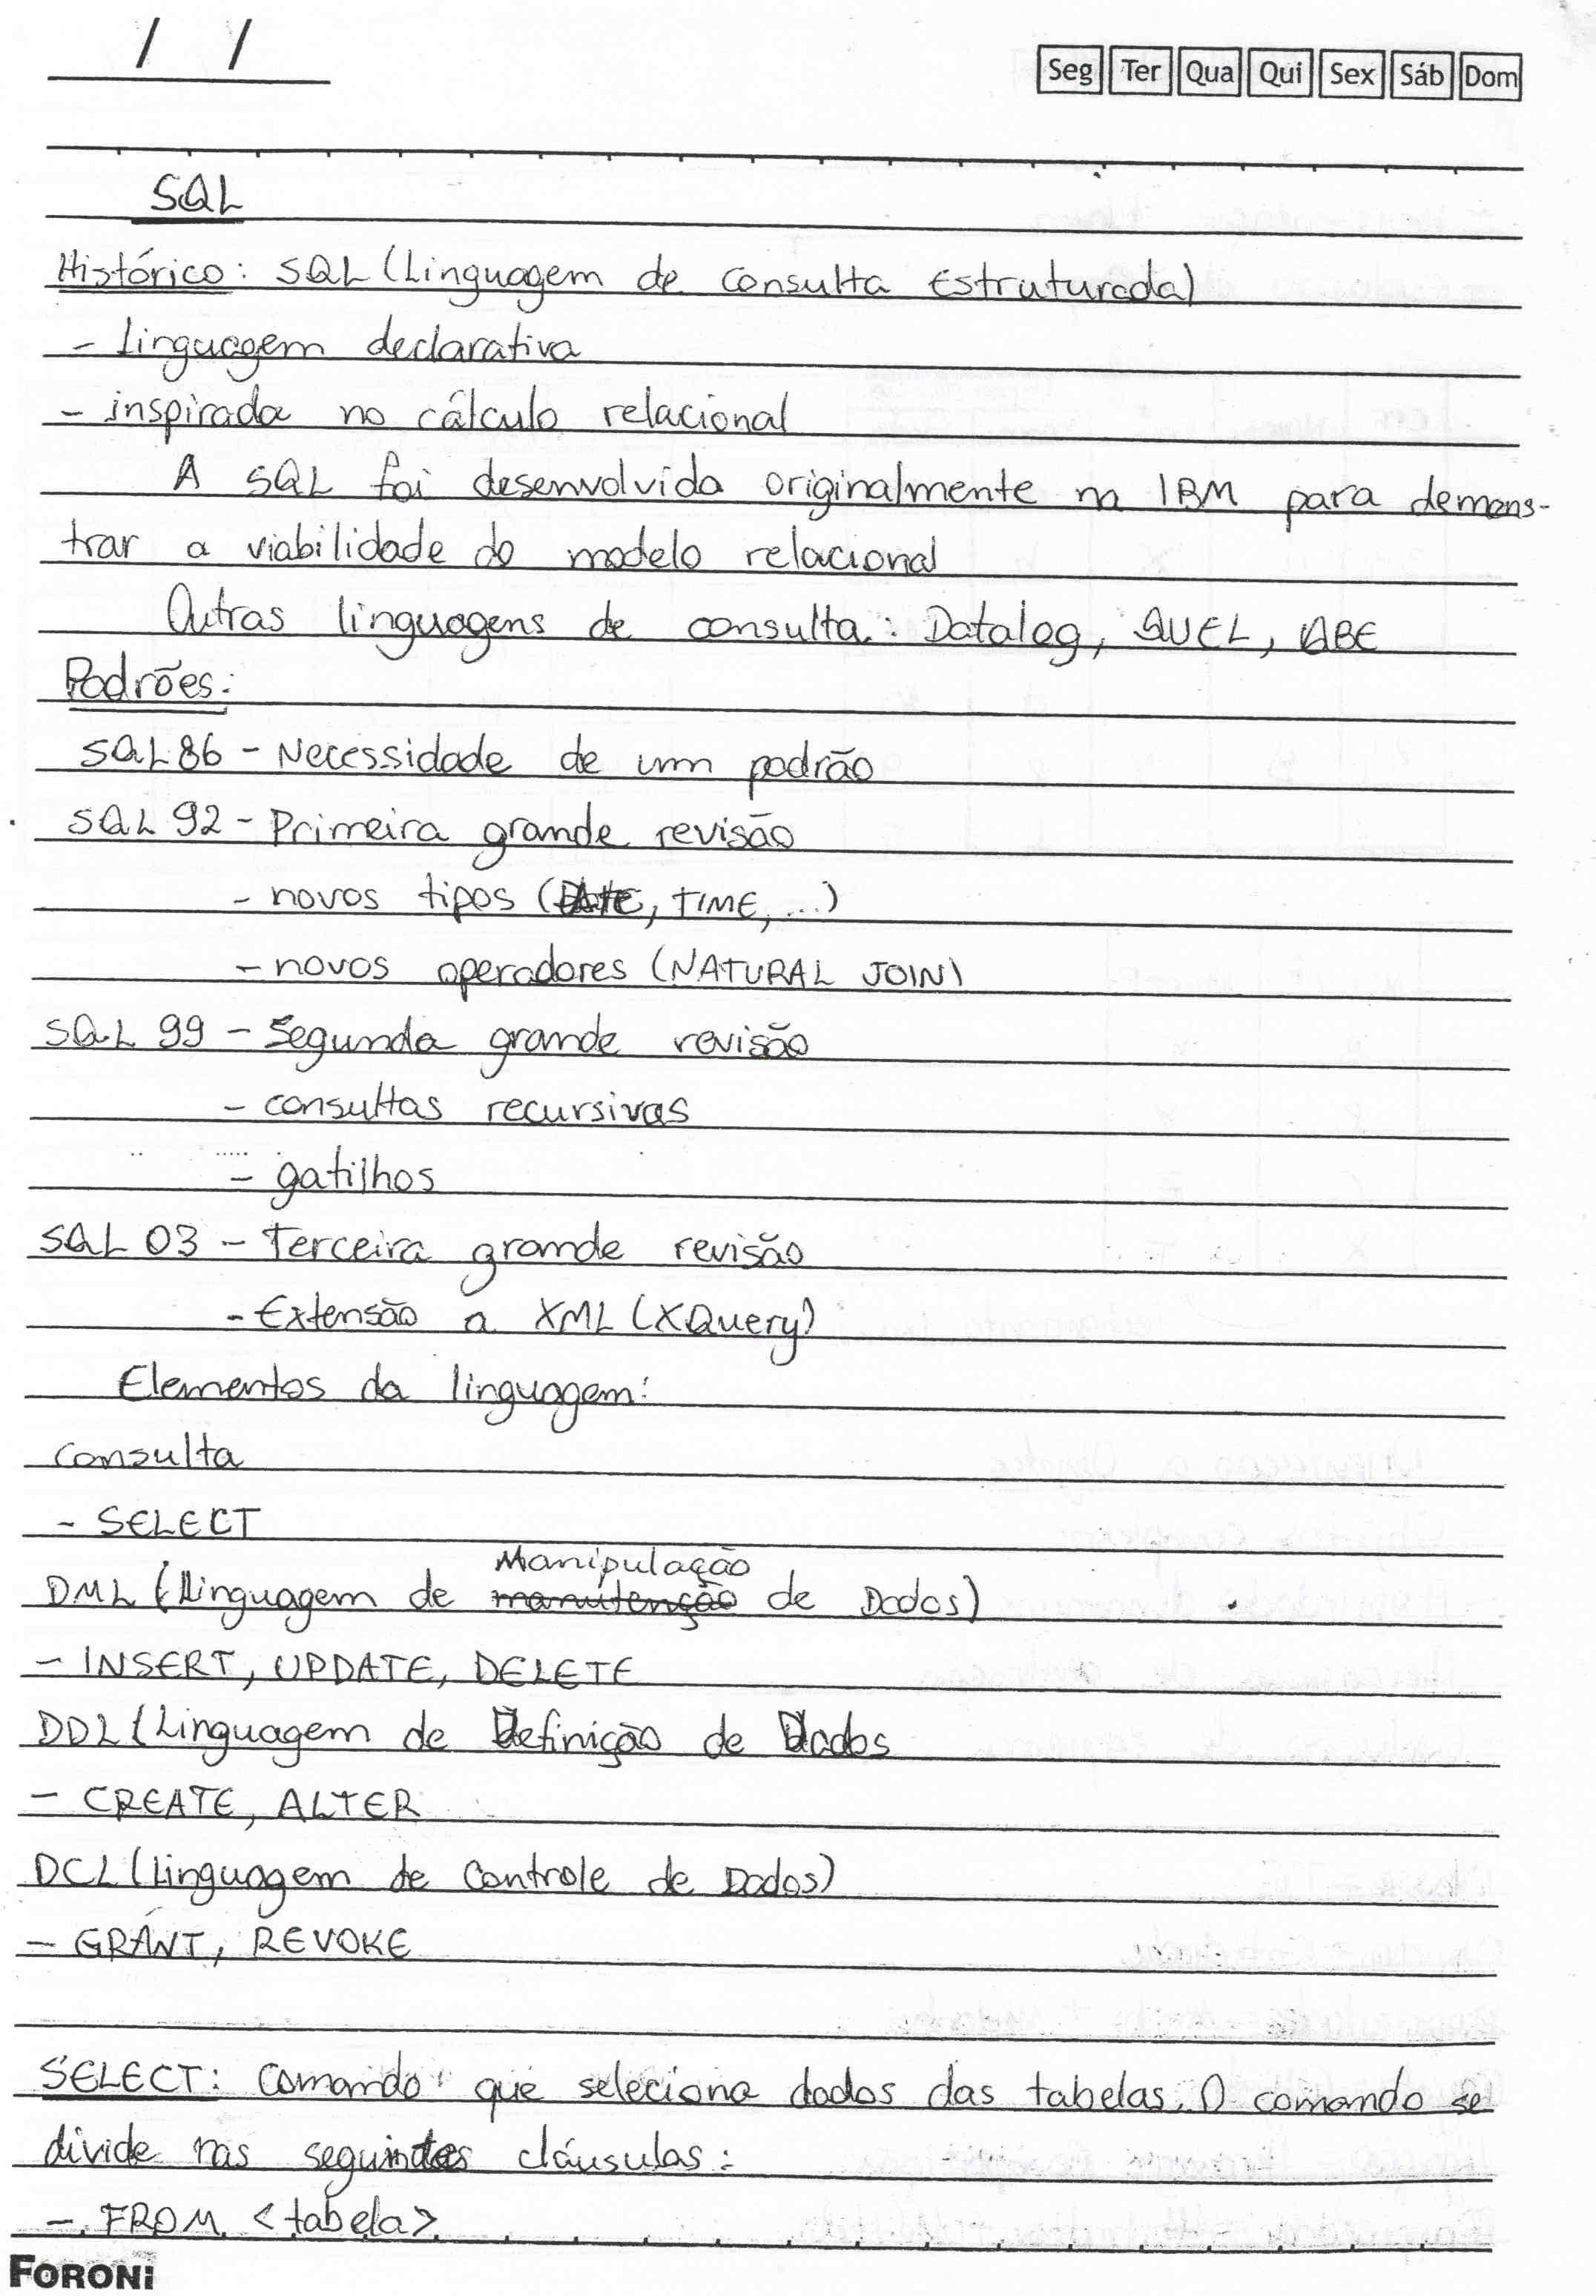 / /
Seg Ter Qua Qui Sex Sáb Dom
SQL
Histórico: SQL (Linguagem de Consulta Estruturada)
- Linguagem declarativa
- inspirada no cálculo relacional
A SQL foi desenvolvida originalmente na IBM para demons-
trar a viabilidade do modelo relacional
Outras linguagens de consulta: Datalog, QUEL, QBE
Padrões:
SQL 86 - Necessidade de um padrão
SQL 92 - Primeira grande revisão
- novos tipos (DATE, TIME, ...)
- novos operadores (NATURAL JOIN)
SQL 99 - Segunda grande revisão
- consultas recursivas
- gatilhos
SQL 03 - Terceira grande revisão
- Extensão a XML (XQuery)
Elementos da linguagem:
Consulta
- SELECT
Manipulação
DML (Linguagem de manutenção de Dados)
- INSERT, UPDATE, DELETE
DDL (Linguagem de Definição de Dados
- CREATE, ALTER
DCL (Linguagem de Controle de Dados)
- GRANT, REVOKE
SELECT: Comando que seleciona dados das tabelas. O comando se
divide nas seguintes cláusulas:
- FROM <tabela>
FORONi